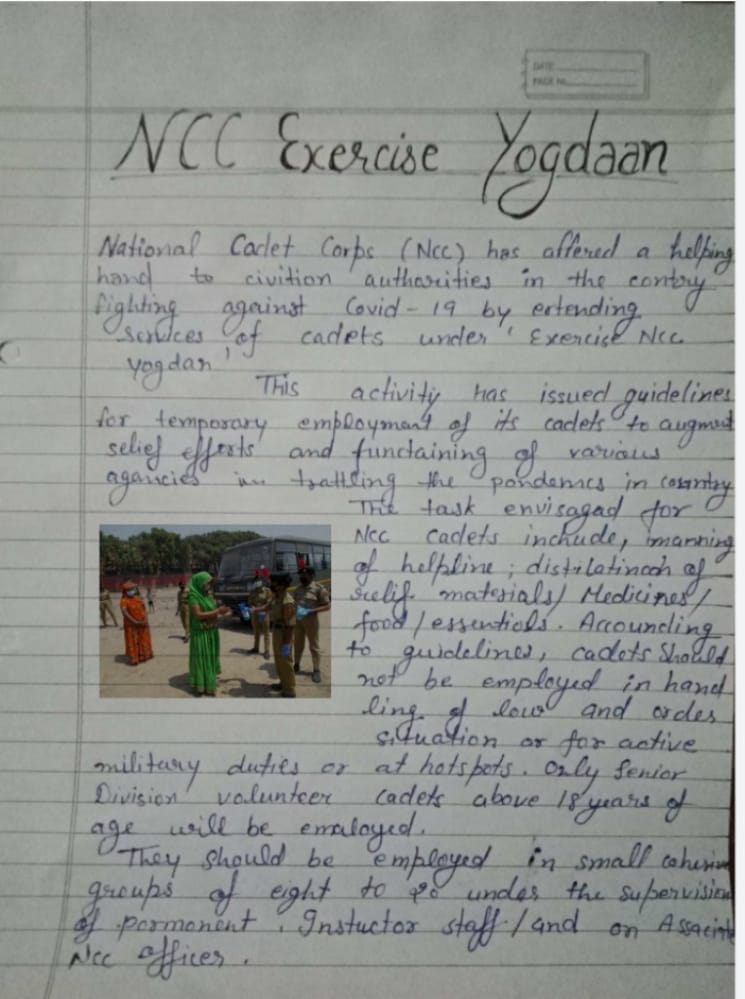 DATE
PAGE No.
NCC Exercise Yogdaan
National Cadet Corps (Ncc) has offered a helping
hand to civition authorities in the contry
fighting against Covid-19 by entending
services of cadets under 'Exercise Ncc
yogdan'
This activity has issued guidelines
for temporary employment of its cadets to augment
selief efforts and functaining of various
agancies in the pandemcs in country
The task envisagad for
Ncc cadets inchude, manning
of helpline; of
relif materials/ Medicines/
food/essentials. Accounding
to guidelines, cadets should
not be employed in hand
ling of low and order
situation or for active
military duties or at hotspots. Only Senior
Division volunteer cadets above 18 years of
age will be emaloyed.
They should be employed in small cohesive
groups of eight to 20 under the supervision
of pormonent. Instuctor staff/and on Associate
Ncc officer.